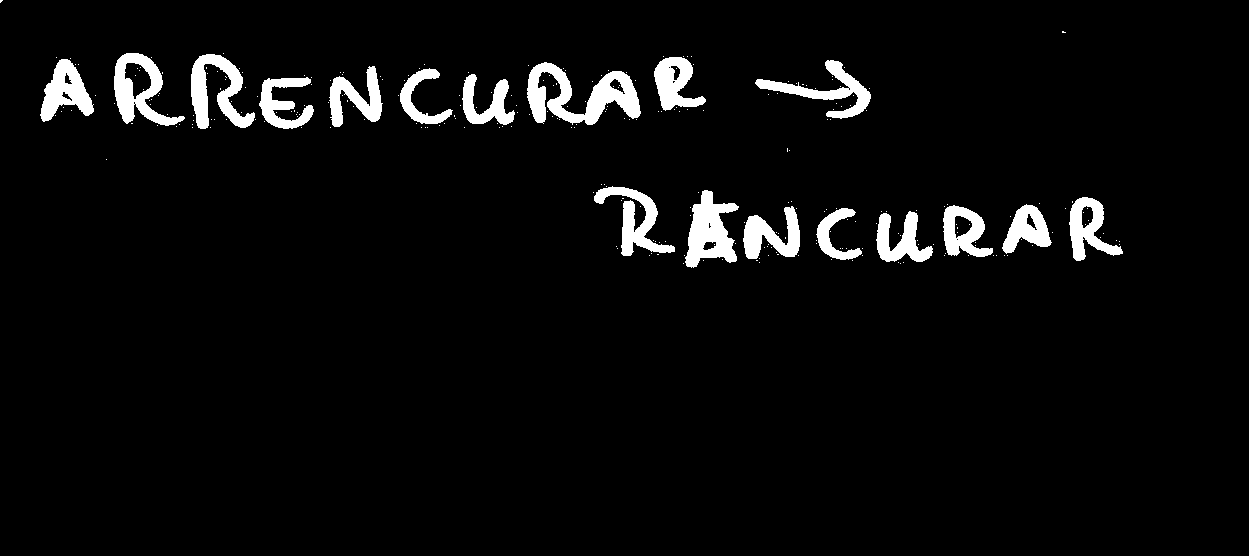 ARRENCURAR →
RANCURAR